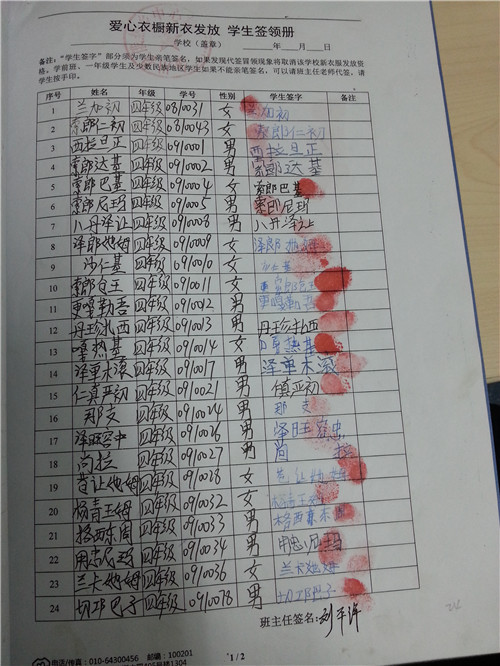 爱心衣橱新衣发放 学生签领册
学校（盖章） 年 月 日
备注："学生签字"部分须为学生亲笔签名，如发现代签冒领现象将取消该学校新衣服发放资
格。学前班、一年级学生及少数民族地区学生如果不能亲笔签名，可以请班主任老师代签，请
学生按手印。
序号 姓名 年级 学号 性别 学生签字 备注
1 兰加初 四年级 080031 女 加初
2 索郎仁初 四年级 080043 女 索郎仁初
3 西拉旦正 四年级 090001 男 西拉旦正
4 索郎达基 四年级 090002 男 索郎达基
5 索郎巴基 四年级 090004 女 索郎巴基
6 索郎尼玛 四年级 090005 男 索郎尼玛
7 八丹泽让 四年级 090008 男 八丹泽让
8 泽郎她姆 四年级 090009 女 泽郎她姆
9 沙仁基 四年级 090010 女
10 索郎白王 四年级 090011 女
11 更嘎勒吾 四年级 090012 男
12 丹珍扎西 四年级 090013 男 丹珍扎西
13 嘎热基 四年级 090014 女 嘎热基
14 泽单木滚 四年级 090017 男 泽单木滚
15 仁真亚初 四年级 090021 男
16 那支 四年级 090024 男 那支
17 泽旺 四年级 090026 男 泽旺
18 尚拉 四年级 090027 男 尚拉
19 昔让她姆 四年级 090028 女
20 杨青王姆 四年级 090032 女
21 扬西东周 四年级 090033 男
22 用忠尼玛 四年级 090034 男 用忠尼玛
23 兰卡她姆 四年级 090036 女 兰卡她姆
24 切邛巴子 四年级 090078 男 切邛巴子
班主任签名：
电话/传真：010-64300456 邮编：100201
1 / 2
1304